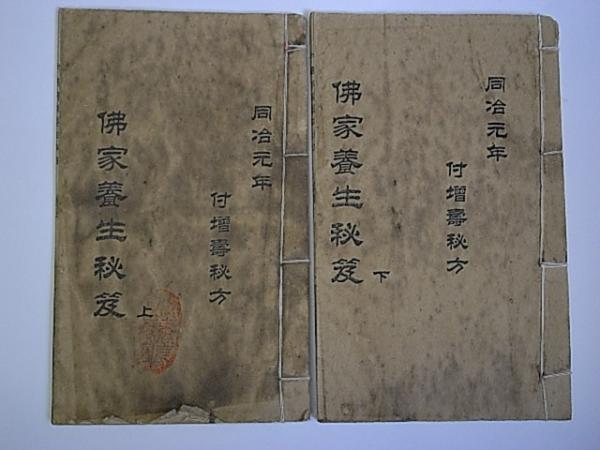 同治元年
付增壽秘方
佛家養生秘笈
上
同治元年
付增壽秘方
佛家養生秘笈
下